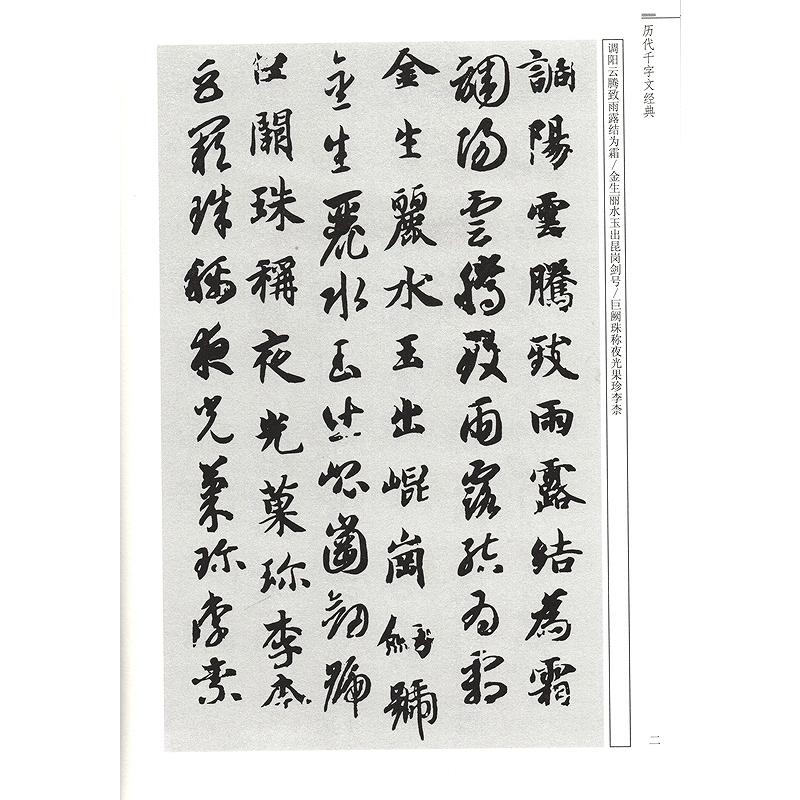 历代千字文经典
调阳云腾致雨露结为霜/金生丽水玉出昆岗剑号/巨阙珠称夜光果珍李柰
調陽雲騰致雨露結為霜
調陽雲騰致雨露結為霜
金生麗水玉出崐崗劒號
金生麗水玉出崐崗劒號
巨闕珠稱夜光菓珍李柰
巨闕珠稱夜光菓珍李柰
二